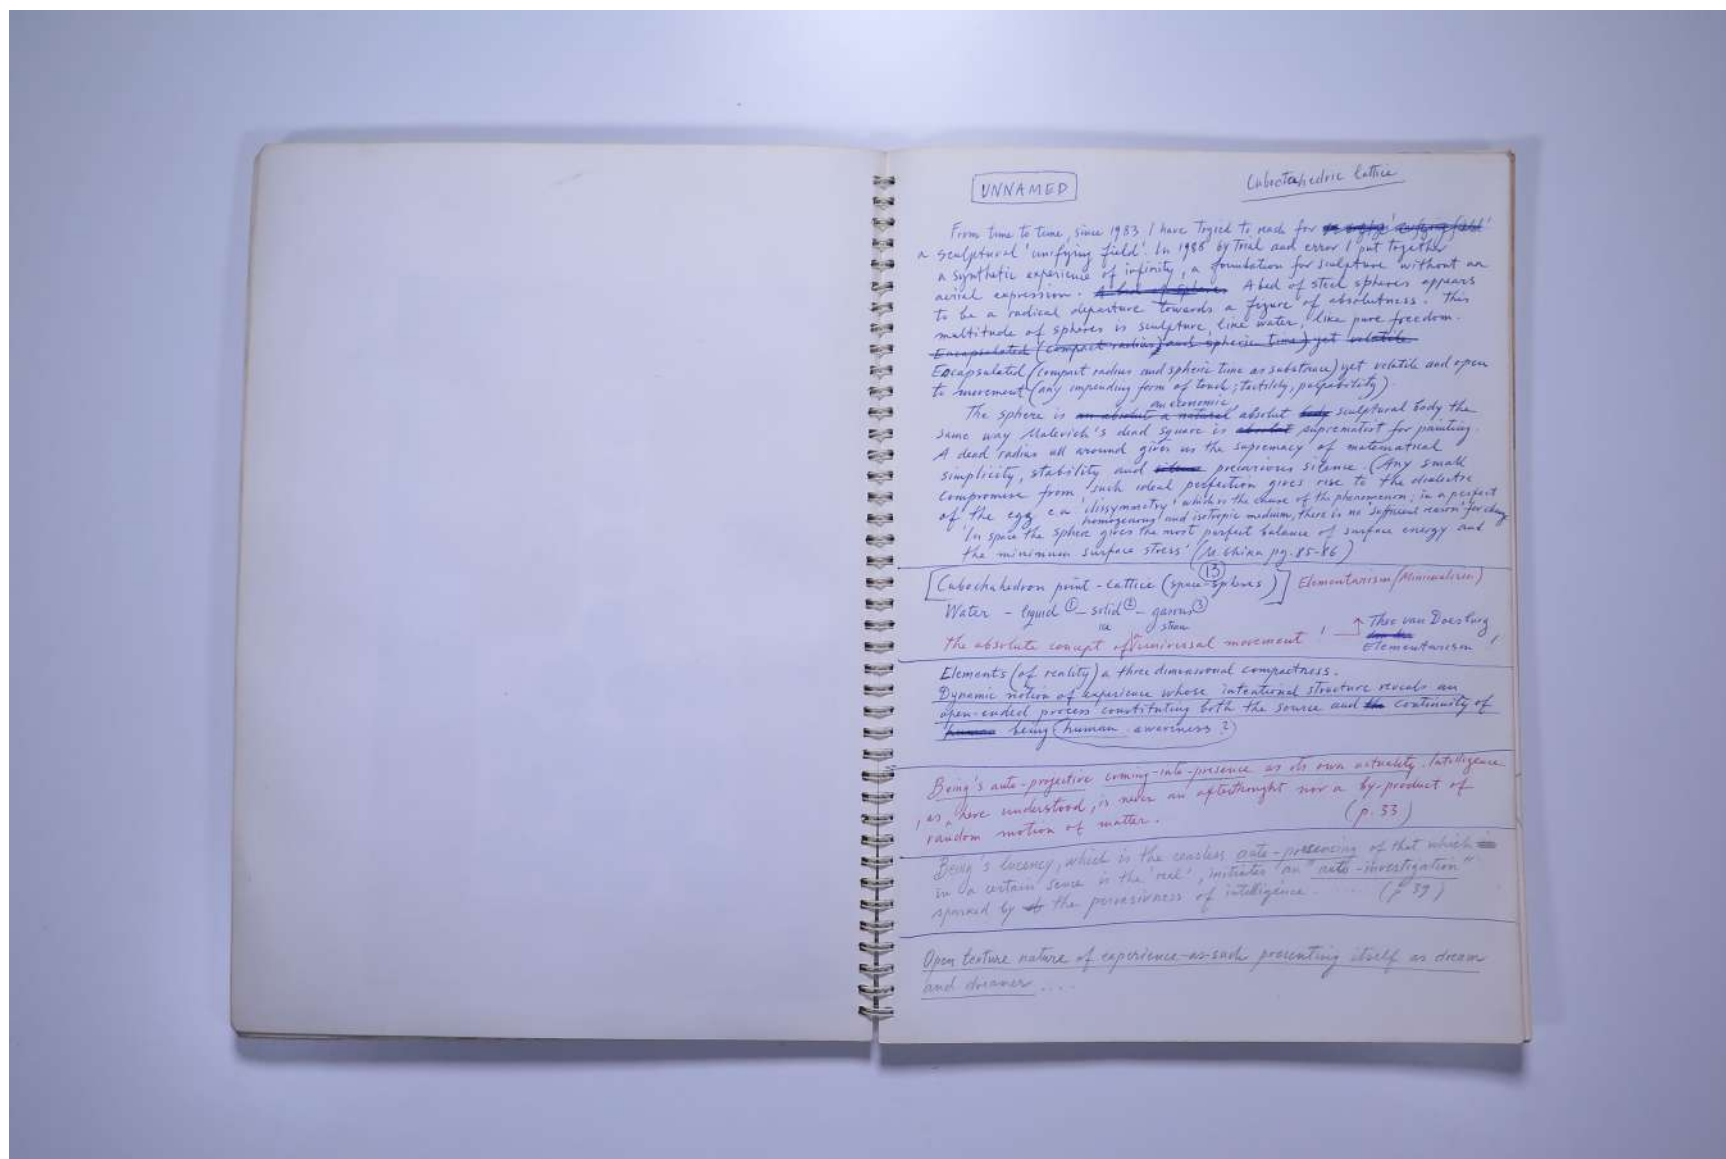 UNNAMED
Cuboctahedric lattice
From time to time, since 1983 I have tryied to reach for
a sculptural 'unifying field'. In 1988 by trial and error I put together
a synthetic experience of infinity, a foundation for sculpture without an
aerial expression. A bed of spheres A bed of steel spheres appears
to be a radical departure towards a figure of absolutness. This
multitude of spheres is sculpture, like water, like pure freedom.
Encapsulated (compact radius) and spheric time) yet volatile
Encapsulated (compact radius and spheric time as substance) yet volatile and open
to movement (any impending form of touch; tactility, palpability).
an economic
The sphere is an absolut a natural absolut body sculptural body the
same way Malevich's dead square is absolut suprematist for painting.
A dead radius all around gives us the supremacy of matematical
simplicity, stability and silence precarious silence. (Any small
compromise from such ideal perfection gives rise to the dialectic
of the egg c.a 'dissymmetry' which is the cause of the phenomenon; in a perfect
homogenous and isotropic medium, there is no 'sufficient reason' for change
'In space the sphere gives the most perfect balance of surface energy and
the minimum surface stress' (M. Ghika pg. 85-86)
13
[Cubochahedron point-lattice (space-spheres)] Elementarism (Minimalism)
Water - liquid ① - solid ② - gasous ③
ice steam
Theo van Doesburg
the absolute concept of universal movement !
Elementarism !
Elements (of reality) a three dimensional compactness.
Dynamic notion of experience whose intentional structure reveals an
open-ended process constituting both the source and the continuity of
human being (human awareness ?)
Being's auto-projective coming-into-presence as its own actuality. Intelligence
, as here understood, is never an afterthought nor a by-product of
random motion of matter. (p. 33)
Being's lucency, which is the ceaseless auto-presencing of that which is
in a certain sense is the 'real', initiates an "auto-investigation"
sparked by of the pervasivness of intelligence ..... (p 39)
Open texture nature of experience-as-such presenting itself as dream
and dreamer ....